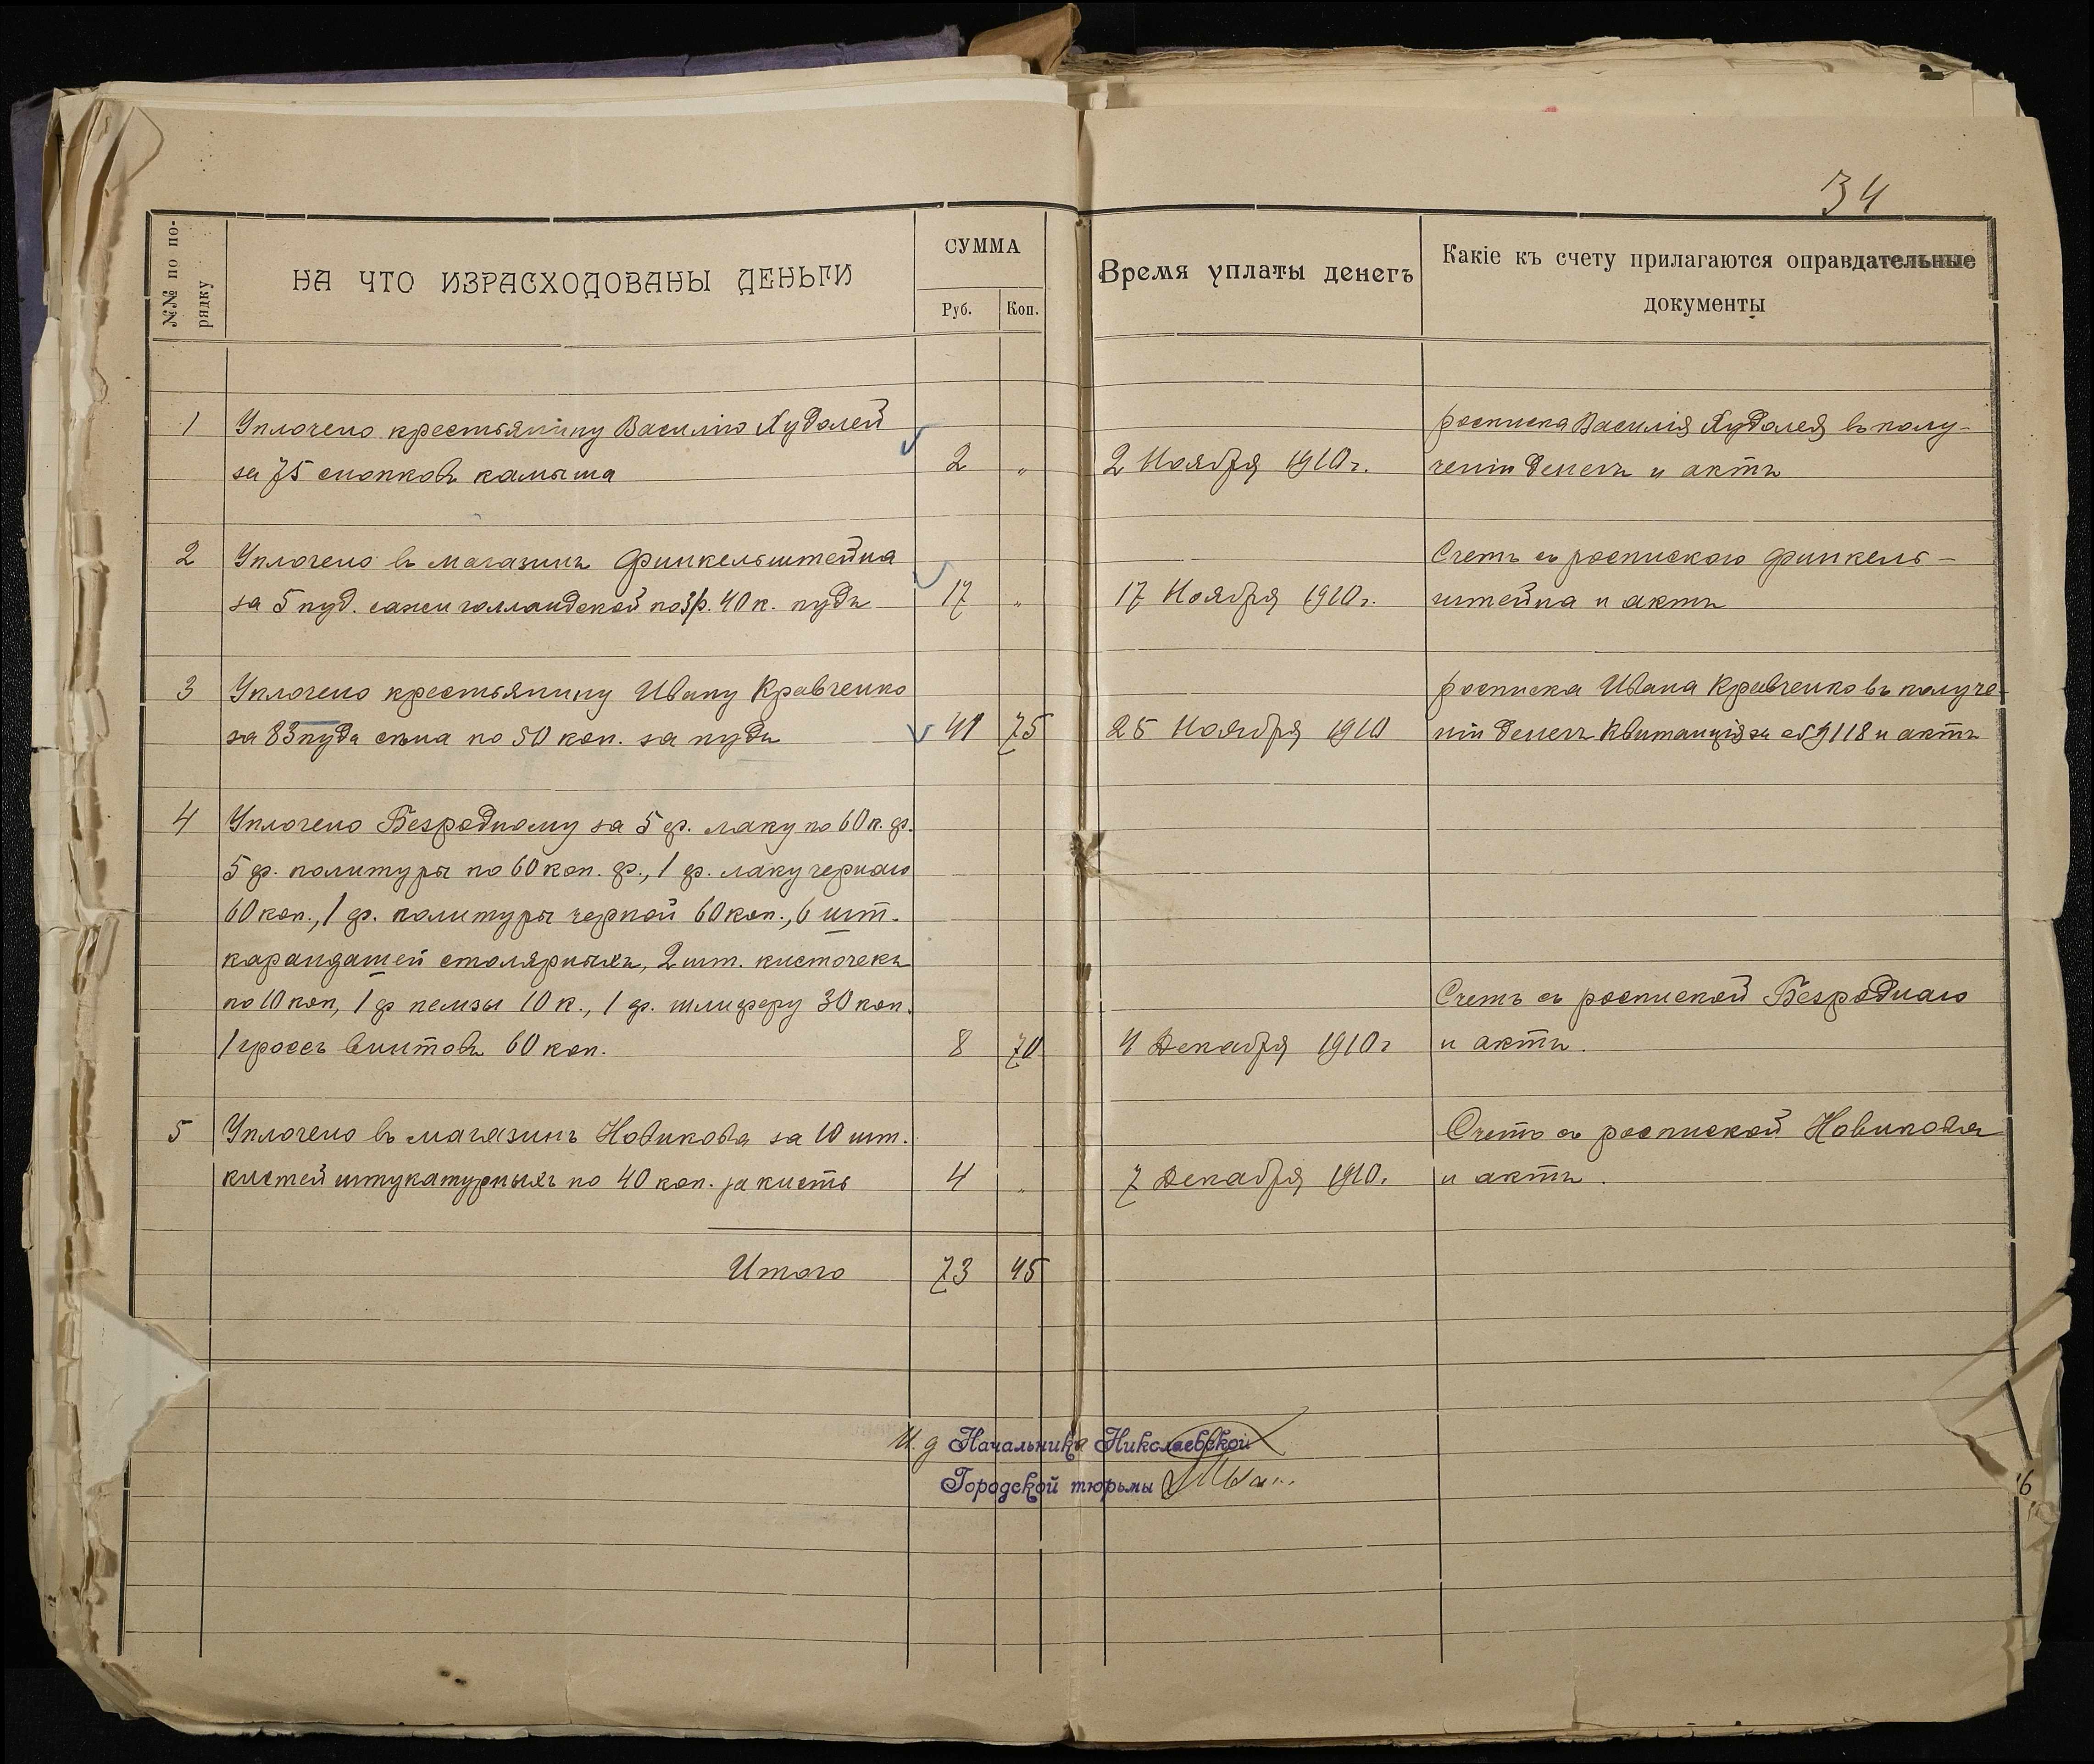 34
№№ по по-
рядку
НА ЧТО ИЗРАСХОДОВАНЫ ДЕНЬГИ
СУММА
Руб.
Коп.
Время уплаты денегъ
Какіе къ счету прилагаются оправдательные
документы
1 Уплочено крестьянину Василію Худолей росписка Василія Худолея въ полу-
за 75 снопковъ камыша 2 „ 2 Ноября 1910 г. ченіи денегъ и актъ
2 Уплочено въ магазинъ Финкельштейна Счетъ съ роспискою Финкель-
за 5 пуд. сажи голландской по 3 р. 40 к. пудъ 17 „ 17 Ноября 1910 г. штейна и актъ
3 Уплочено крестьянину Ивану Кравченко росписка Ивана Кравченко въ получе-
за 83 пуда сѣна по 50 коп. за пудъ 41 75 25 Ноября 1910 ніи денегъ квитанція за № 9118 и актъ
4 Уплочено Безродному за 5 ф. лаку по 60 к. ф.
5 ф. политуры по 60 коп. ф., 1 ф. лаку чернаго
60 коп., 1 ф. политуры черной 60 коп., 6 шт.
карандашей столярныхъ, 2 шт. кисточекъ
по 10 коп, 1 ф пемзы 10 к., 1 ф. шлиферу 30 коп. Счетъ съ роспиской Безроднаго
1 гроссъ винтовъ 60 коп. 8 70 4 Декабря 1910 г и актъ.
5 Уплочено въ магазинъ Новикова за 10 шт. Счетъ съ роспиской Новикова
кистей штукатурныхъ по 40 коп. за кисть 4 „ 7 Декабря 1910. и актъ.
Итого 73 45
И. д Начальника Николаевской
Городской тюрьмы
6